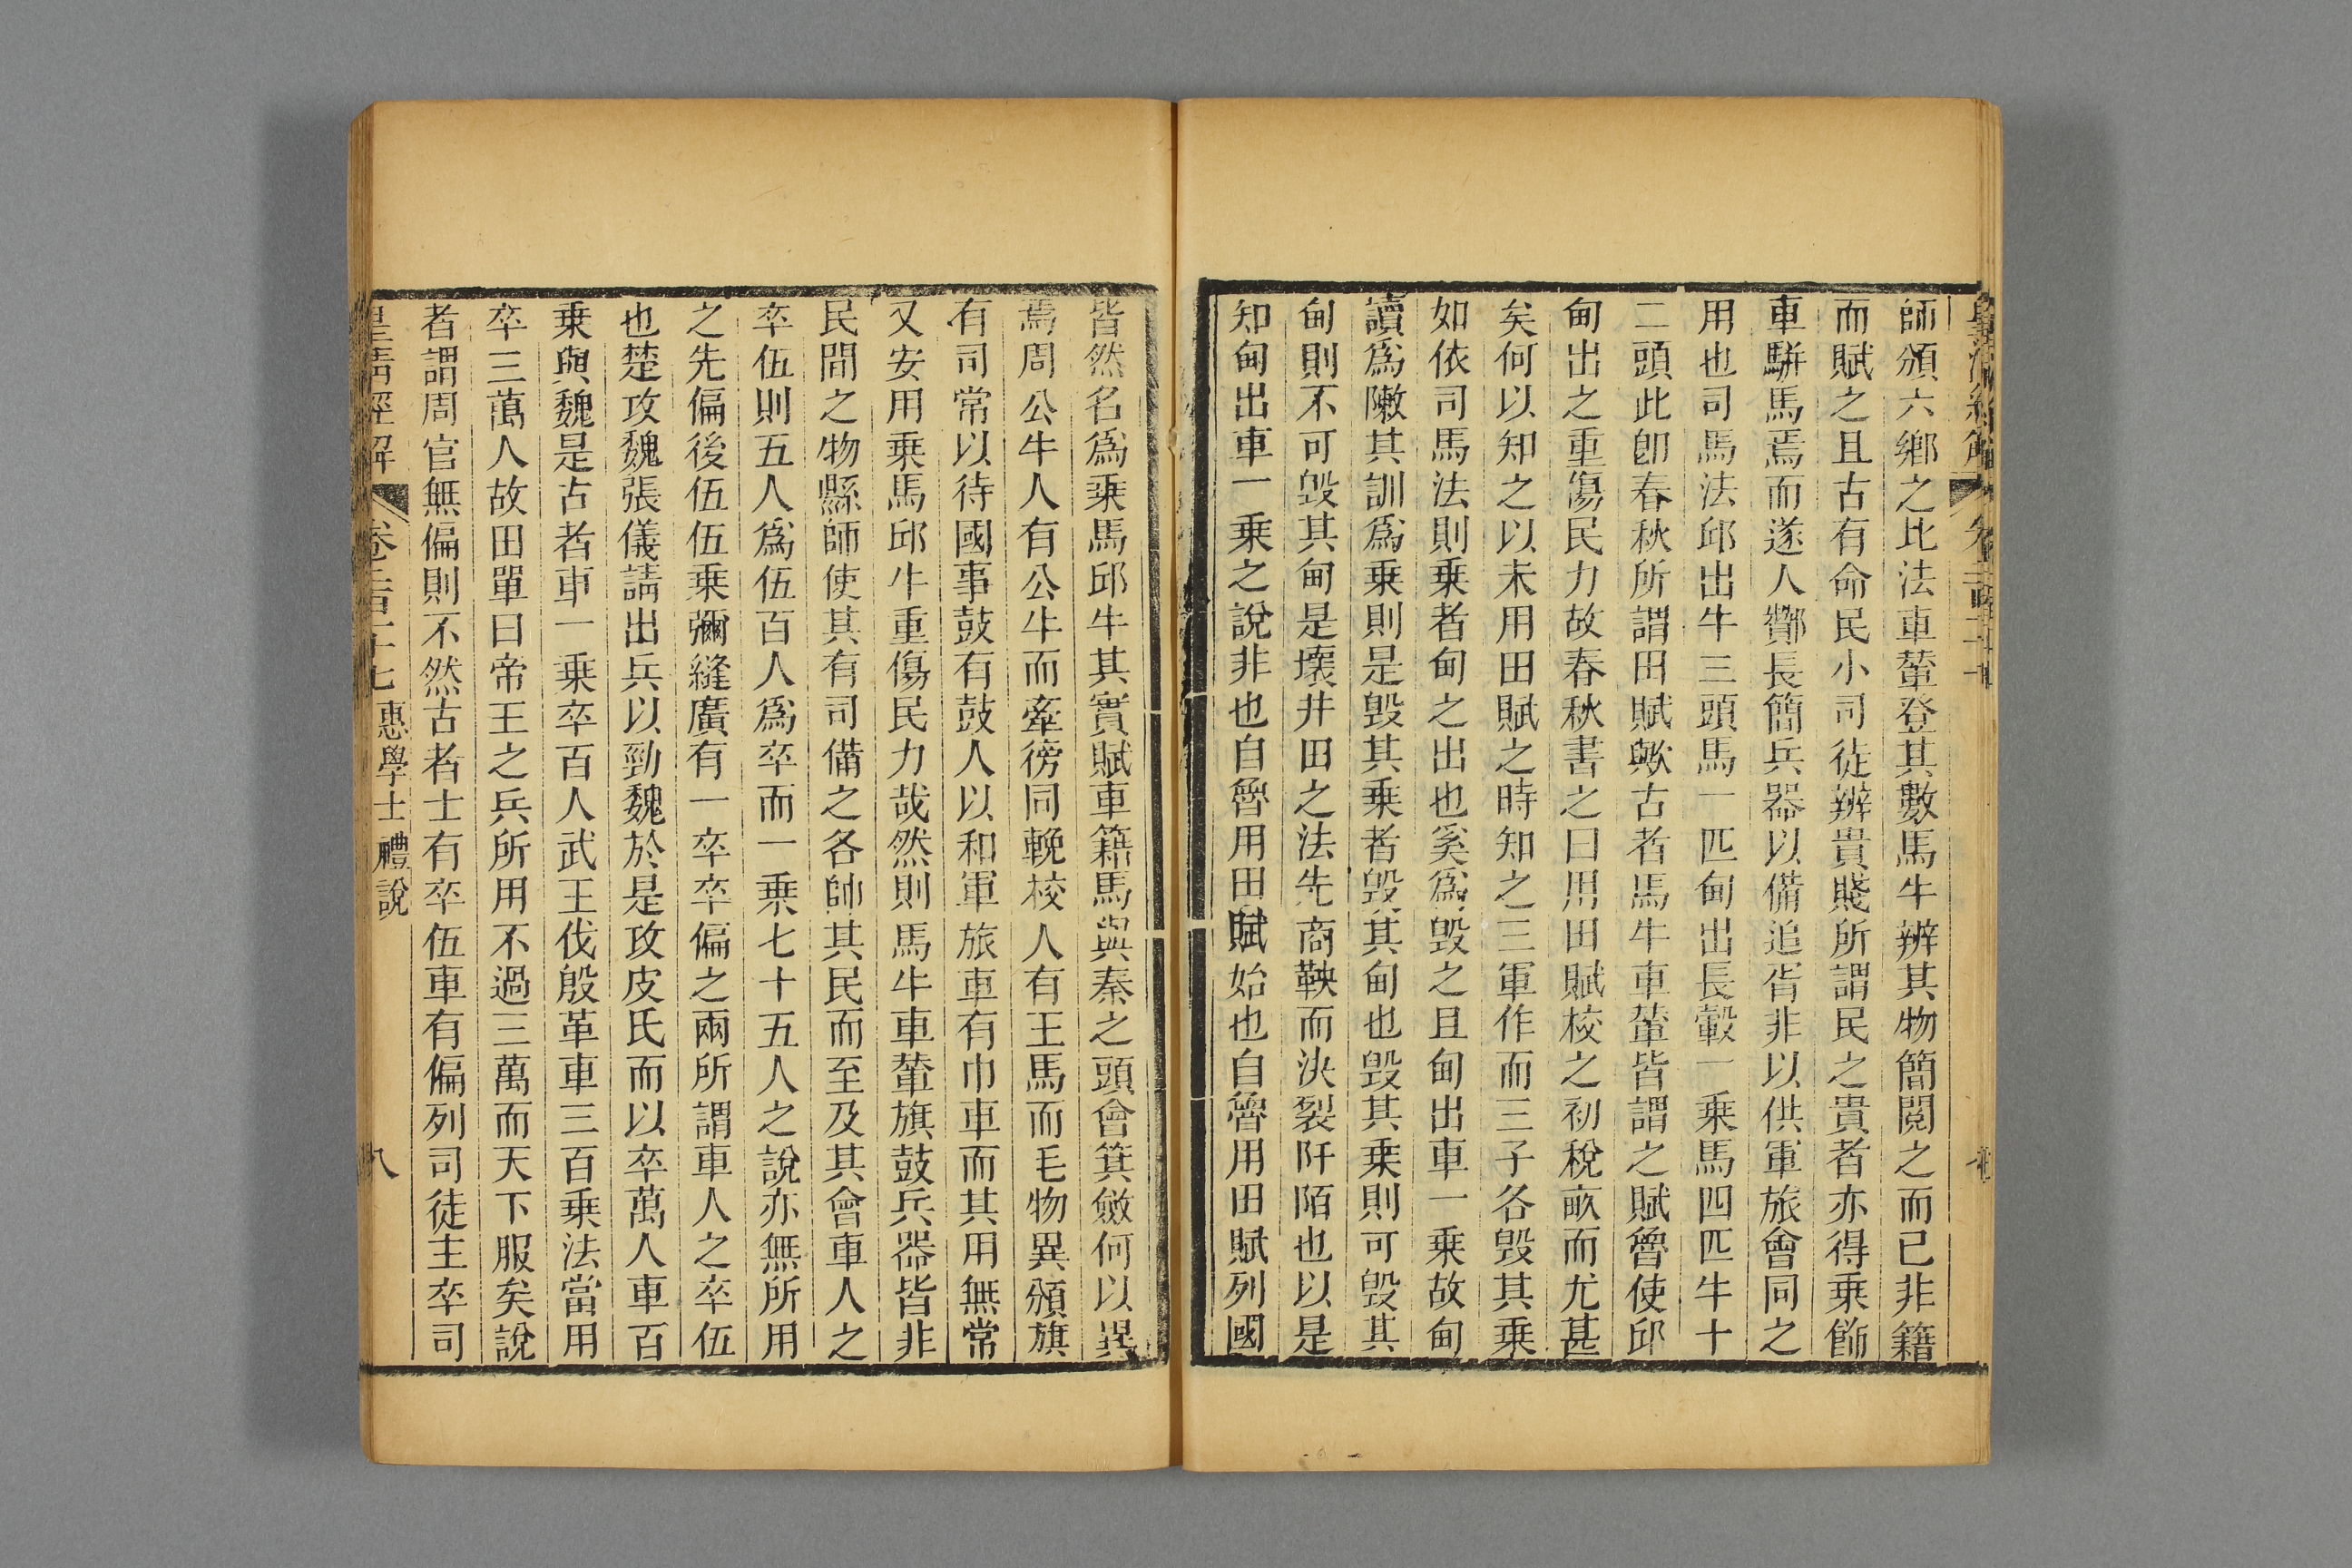 師頒六鄉之比法車輦登其數馬牛辨其物簡閱之而已非籍
而賦之且古有命民小司徒辨貴賤所謂民之貴者亦得乘飾
車駢馬焉而遂人酇長簡兵器以備追胥非以供軍旅會同之
用也司馬法邱出牛三頭馬一匹甸出長轂一乗馬四匹牛十
二頭此卽春秋所謂田賦歟古者馬牛車輦皆謂之賦魯使邱
甸出之重傷民力故春秋書之曰用田賦校之初稅畝而尤甚
矣何以知之以未用田賦之時知之三軍作而三子各毀其乗
如依司馬法則乗者甸之出也奚爲毀之且甸出車一乗故甸
讀爲敶其訓爲乗則是毀其乗者毀其甸也毀其乗則可毀其
甸則不可毀其甸是壞井田之法先商鞅而決裂阡陌也以是
知甸出車一乗之說非也自魯用田賦始也自魯用田賦列國
皆然名爲乗馬邱牛其實賦車籍馬與秦之頭會箕斂何以異
焉周公牛人有公牛而牽徬同輓校人有王馬而毛物異頒旗
有司常以待國事鼓有鼓人以和軍旅車有巾車而其用無常
又安用乗馬邱牛重傷民力哉然則馬牛車輦旗鼓兵器皆非
民間之物縣師使其有司備之各帥其民而至及其會車人之
卒伍則五人爲伍百人爲卒而一乗七十五人之說亦無所用
之先偏後伍伍乗彌縫廣有一卒卒偏之兩所謂車人之卒伍
也楚攻魏張儀請出兵以勁魏於是攻皮氏而以卒萬人車百
乗與魏是古者車一乗卒百人武王伐殷革車三百乗法當用
卒三萬人故田單曰帝王之兵所用不過三萬而天下服矣說
者謂周官無偏則不然古者士有卒伍車有偏列司徒主卒司
皇淸經解 卷二百二十七 惠學士禮說 八